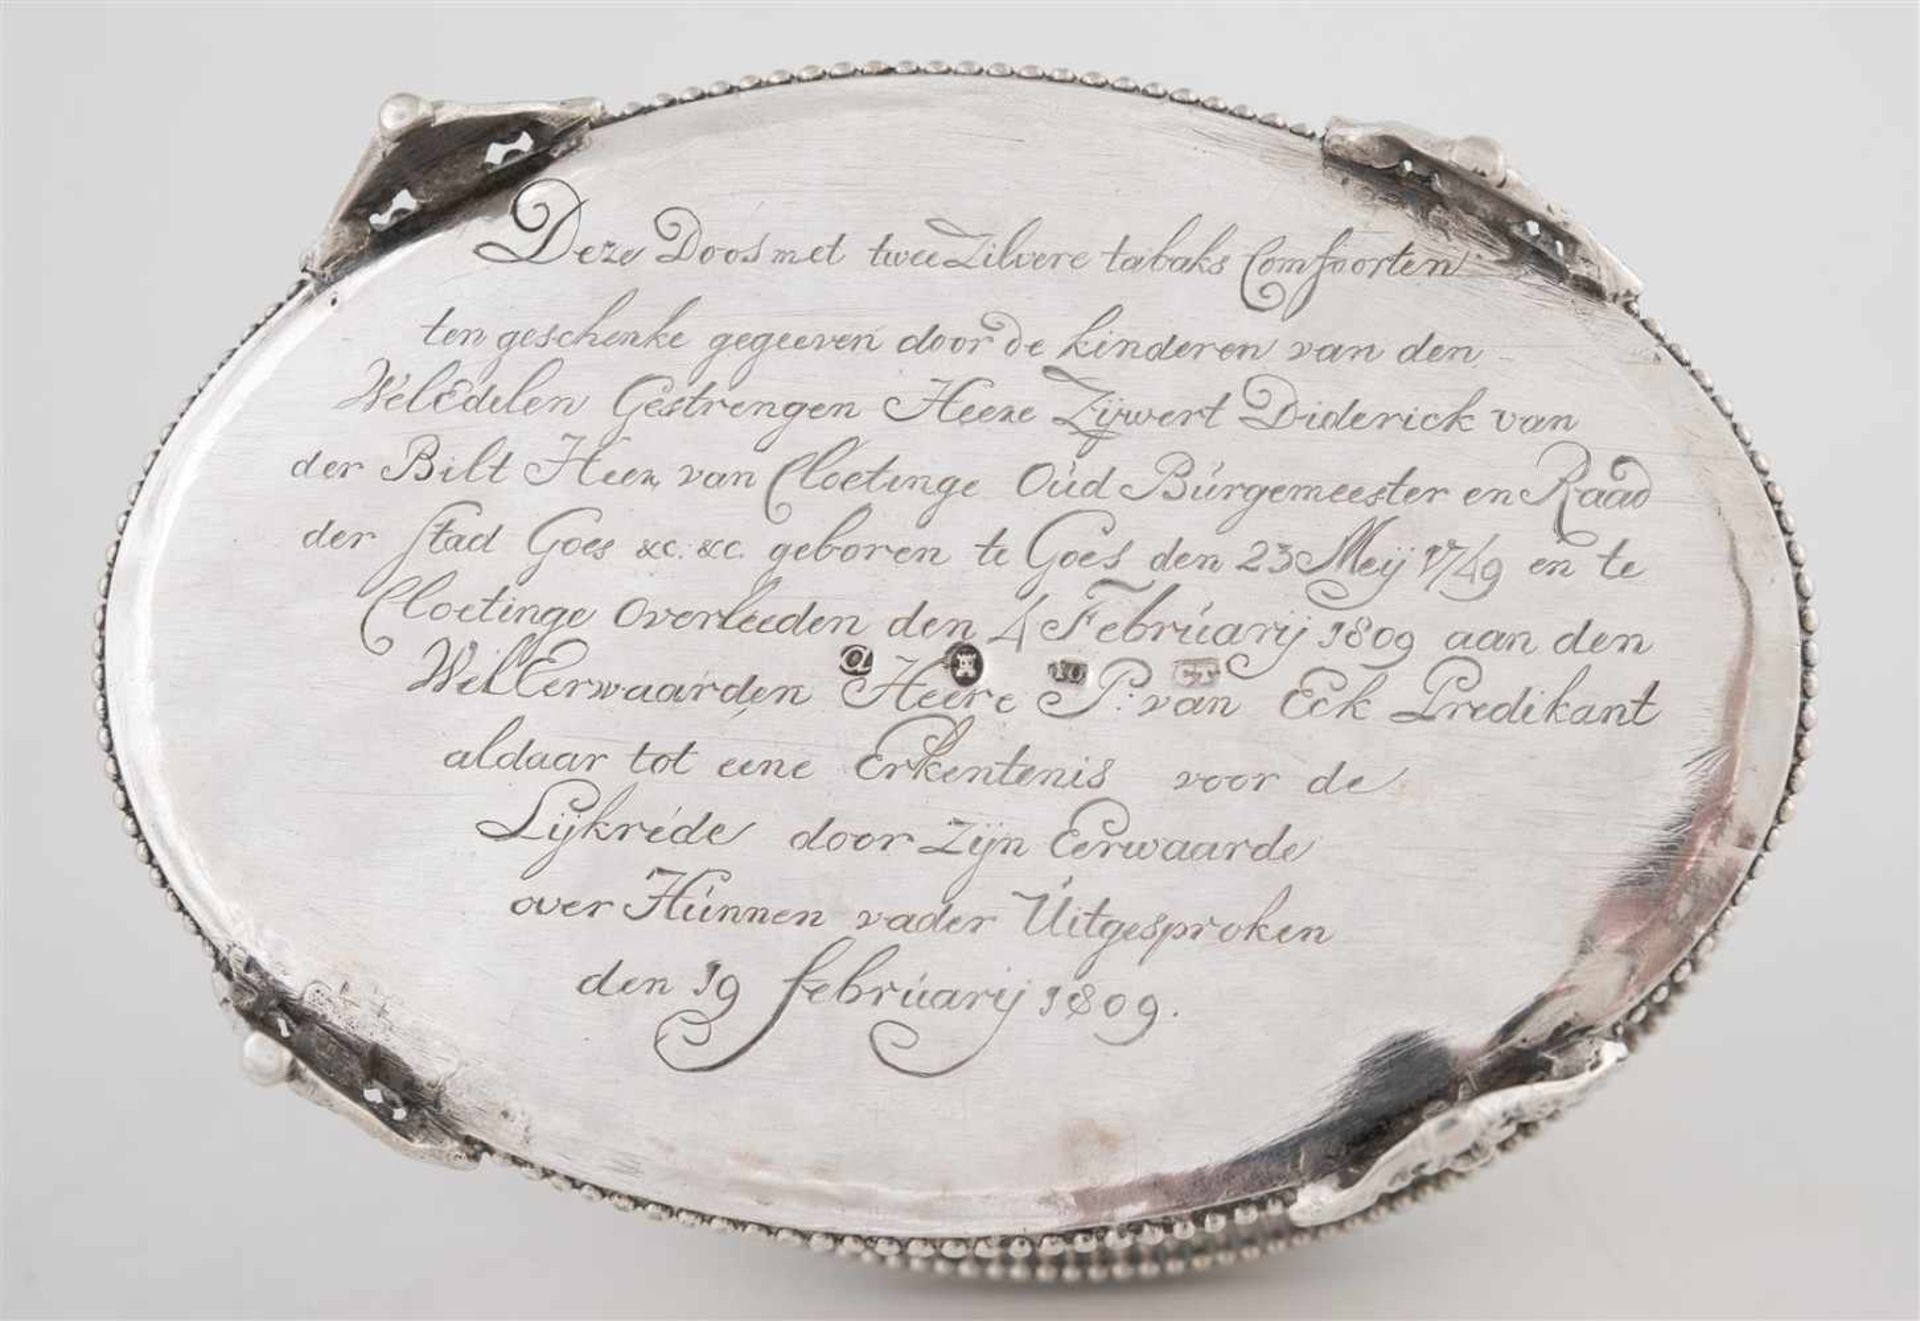 Deze Doos met twee Zilvere tabaks Comfoorten
ten geschenke gegeeven door de kinderen van den
WelEdelen Gestrengen Heere Zijwert Diderick van
der Bilt Heer van Cloetinge Oúd Búrgemeester en Raad
der Stad Goes &c. &c. geboren te Goes den 23 Meij 1749 en te
Cloetinge overleeden den 4 Febrúarij 1809 aan den
WelEerwaarden Heere P: van Eck Predikant
aldaar tot eene Erkentenis voor de
Lijkréde door zijn Eerwaarde
over Húnnen vader Úitgesproken
den 19 februarij 1809.